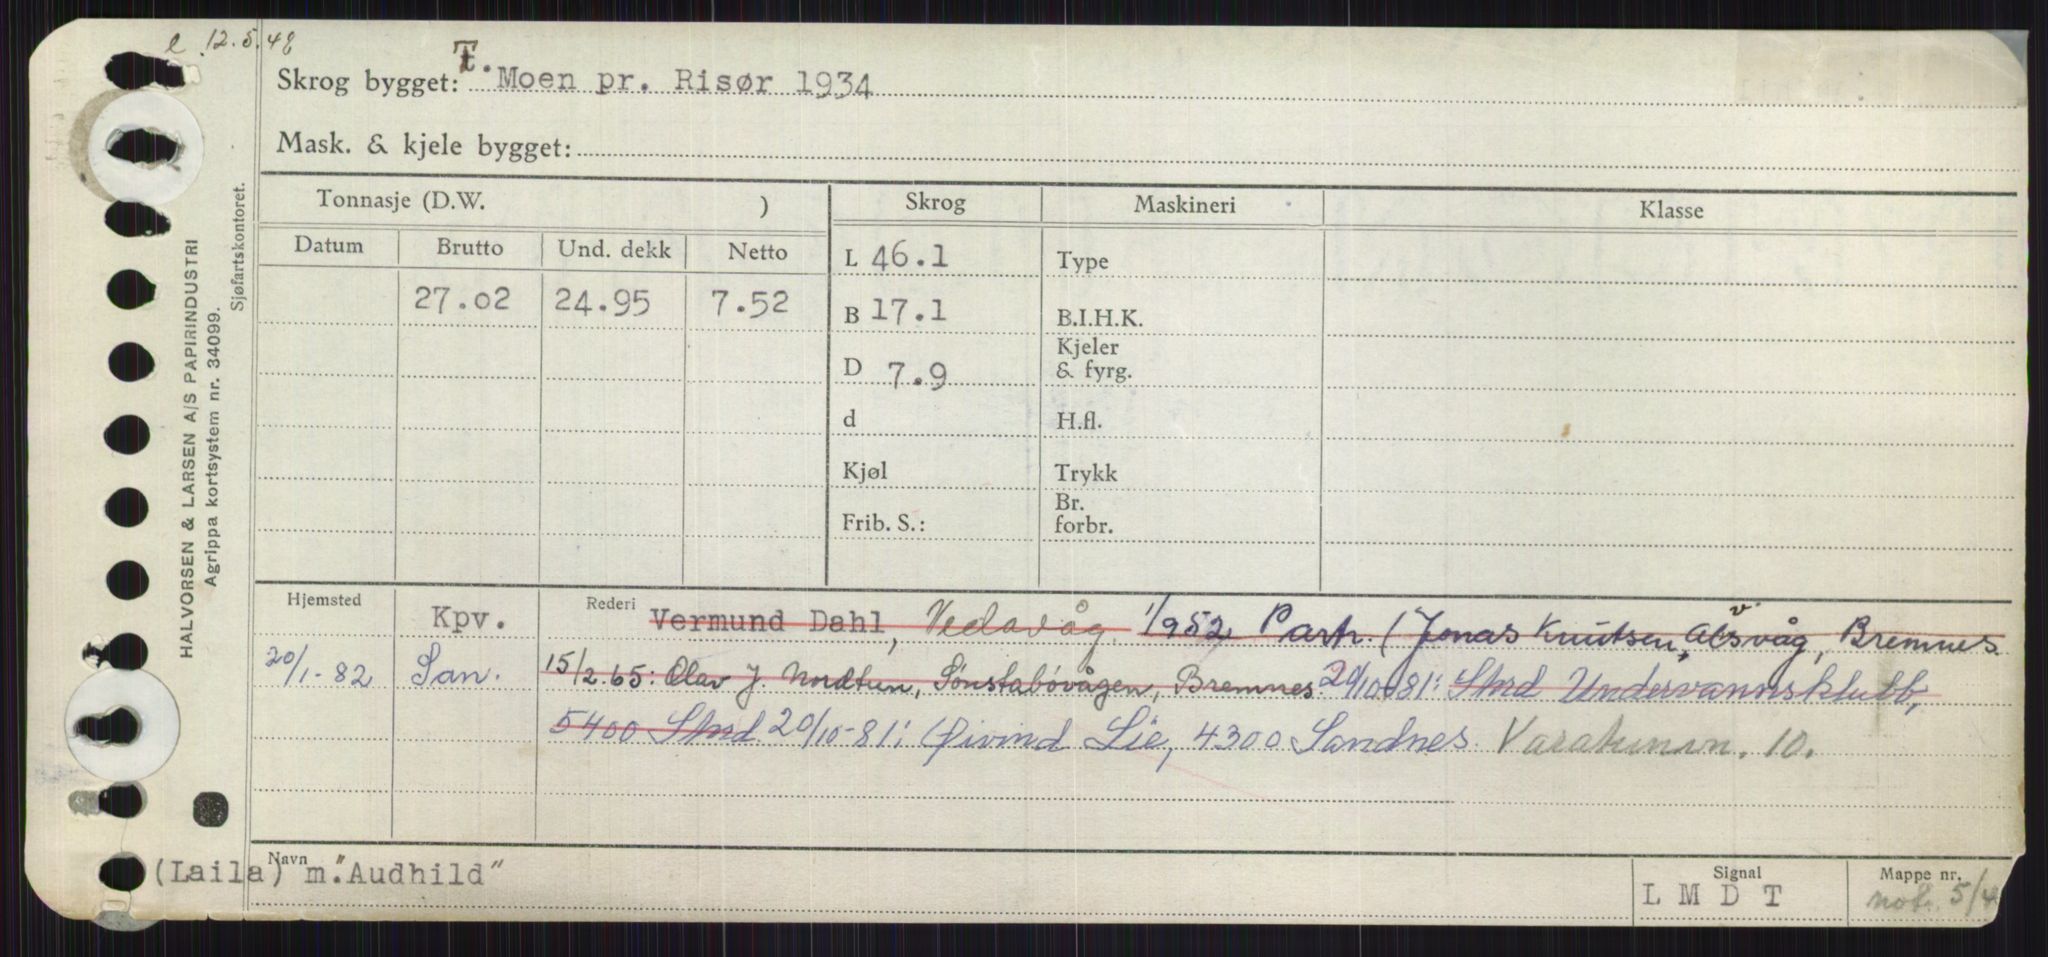 e 12.5.48
Skrog bygget: T. Moen pr. Risør 1934
Mask. & kjele bygget:
Tonnasje (D.W. ) Skrog Maskineri Klasse
Datum Brutto Und. dekk Netto
L 46.1 Type
27.02 24.95 7.52
B 17.1 B.I.H.K.
D 7.9 Kjeler & fyrg.
d H.fl.
Kjøl Trykk
Frib. S.: Br. forbr.
Hjemsted Kpv. Rederi Vermund Dahl, Vedavåg. 1/952 Partr. (Jonas Knutsen, Alsvåg, Bremnes
20/1-82 San. 15/2.65: Olav J. Nordtun, Sønstabøvågen, Bremnes 20/10-81: Stord Undervannsklubb,
5400 Stord 20/10-81: Øivind Lie, 4300 Sandnes.
10.
Navn (Laila) m."Audhild" Signal L M D T Mappe nr. not. 5/4
HALVORSEN & LARSEN A/S PAPIRINDUSTRI
Agrippa kortsystem nr. 34099.
Sjøfartskontoret.